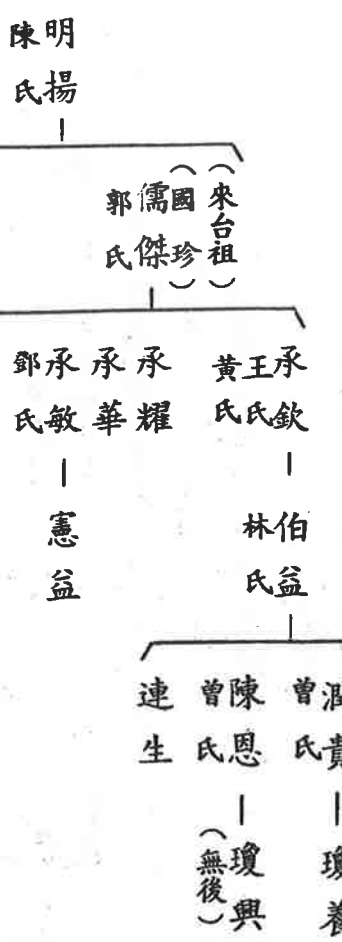 明揚
陳氏
（來台祖）
（國珍）
儒傑
郭氏
承欽
王氏
黃氏
承耀
承華
承敏
鄧氏
伯益
林氏
憲益
曾氏
陳恩
曾氏
連生
瓊養
瓊興
（無後）